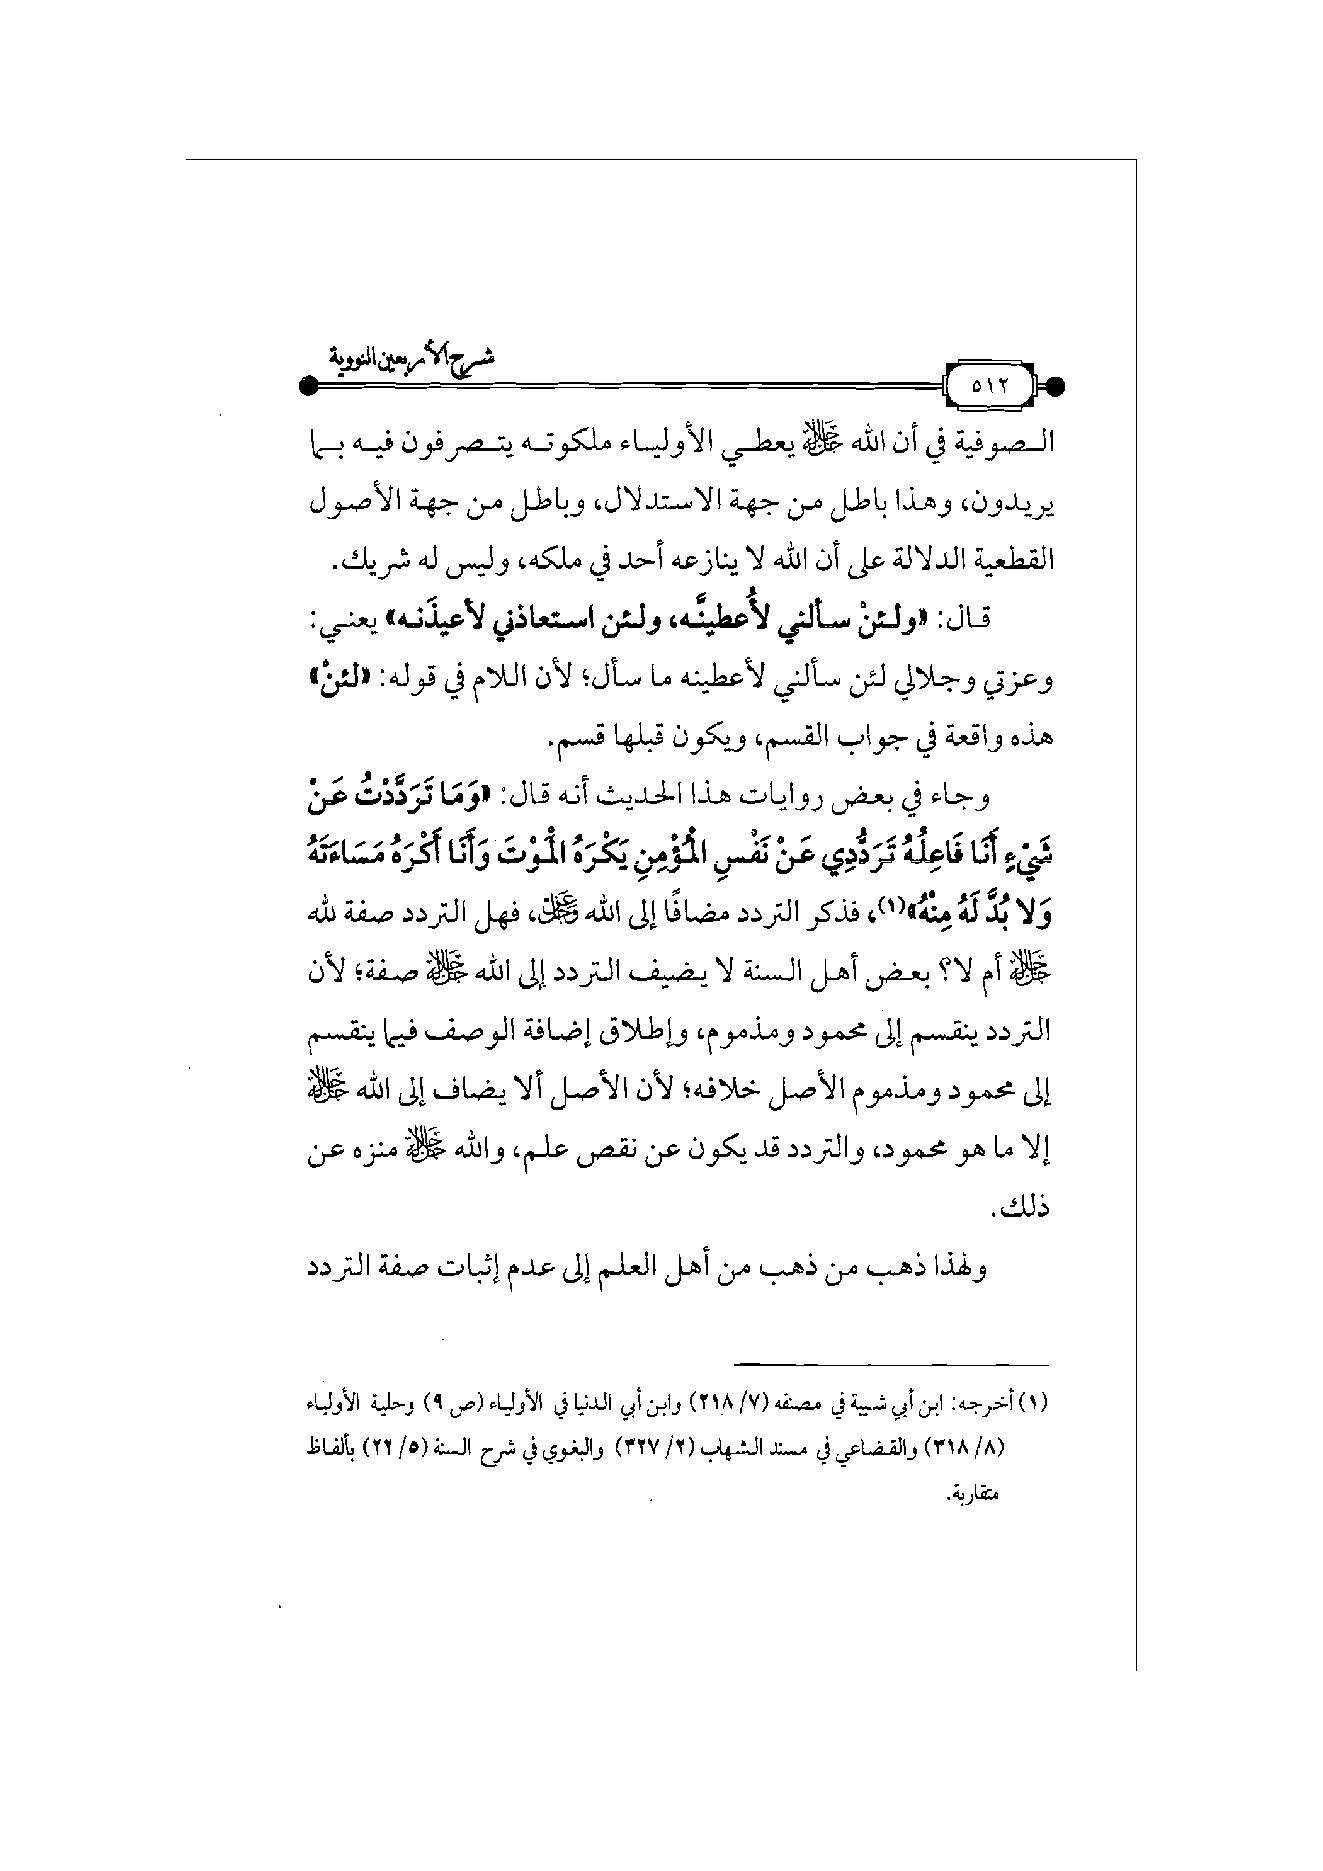 شرح الأربعين النووية
٥١٢
الـصوفية في أن الله ﷻ يعطـي الأوليـاء ملكوتـه يتـصرفون فيـه بـما
يريـدون، وهـذا باطـل مـن جهـة الاسـتدلال، وباطـل مـن جهـة الأصـول
القطعية الدلالة على أن الله لا ينازعه أحد في ملكه، وليس له شريك.
قـال: «ولـئنْ سـألني لأُعطينَّـه، ولـئن اسـتعاذني لأعيذَنـه» يعنـي:
وعزتي وجلالي لئن سألني لأعطينه ما سأل؛ لأن الـلام في قولـه: «لئنْ»
هذه واقعة في جواب القسم، ويكون قبلها قسم.
وجـاء في بعـض روايـات هـذا الحديـث أنـه قـال: «وَمَـا تَـرَدَّدْتُ عَـنْ
شَيْءٍ أَنَا فَاعِلُهُ تَرَدُّدِي عَنْ نَفْسِ المُؤْمِنِ يَكْرَهُ المَوْتَ وَأَنَا أَكْرَهُ مَسَاءَتَهُ
وَلا بُدَّ لَهُ مِنْهُ»(١)، فذكر التردد مضافًا إلى الله ﷻ، فهل التردد صفة لله
ﷻ أم لا؟ بعـض أهـل الـسنة لا يـضيف الـتردد إلى الله ﷻ صـفة؛ لأن
التردد ينقسم إلى محمود ومذموم، وإطلاق إضافة الوصف فيما ينقسم
إلى محمود ومـذموم الأصـل خلافـه؛ لأن الأصـل ألا يـضاف إلى الله ﷻ
إلا ما هو محمود، والتردد قد يكون عن نقص علم، والله ﷻ منزه عن
ذلك.
ولهذا ذهب من ذهـب مـن أهـل العلـم إلى عـدم إثبـات صـفة الـتردد
(١) أخرجه: ابن أبي شيبة في مصنفه (٧/ ٢١٨) وابن أبي الدنيا في الأولياء (ص ٩) وحلية الأولياء
(٨/ ٣١٨) والقضاعي في مسند الشهاب (٢/ ٣٢٧) والبغوي في شرح السنة (٥/ ٢٢) بألفاظ
متقاربة.